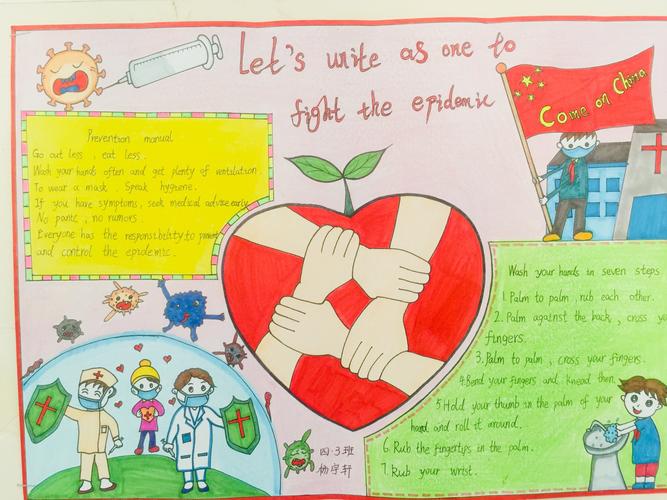 Let's unite as one to
fight the epidemic
Come on China
Prevention manual
Go out less, eat less.
Wash your hands often and get plenty of ventilation.
To wear a mask. Speak hygiene.
If you have symptoms, seek medical advice early.
No panic, no rumors.
Everyone has the responsibility to prevent
and control the epidemic.
Wash your hands in seven steps
1. Palm to palm, rub each other.
2. Palm against the back, cross
fingers.
3. Palm to palm, cross your fingers.
4. Bend your fingers and knead then.
5. Hold your thumb in the palm of your
hand and roll it around.
6. Rub the fingertips in the palm.
7. Rub your wrist.
四·3班
杨宇轩